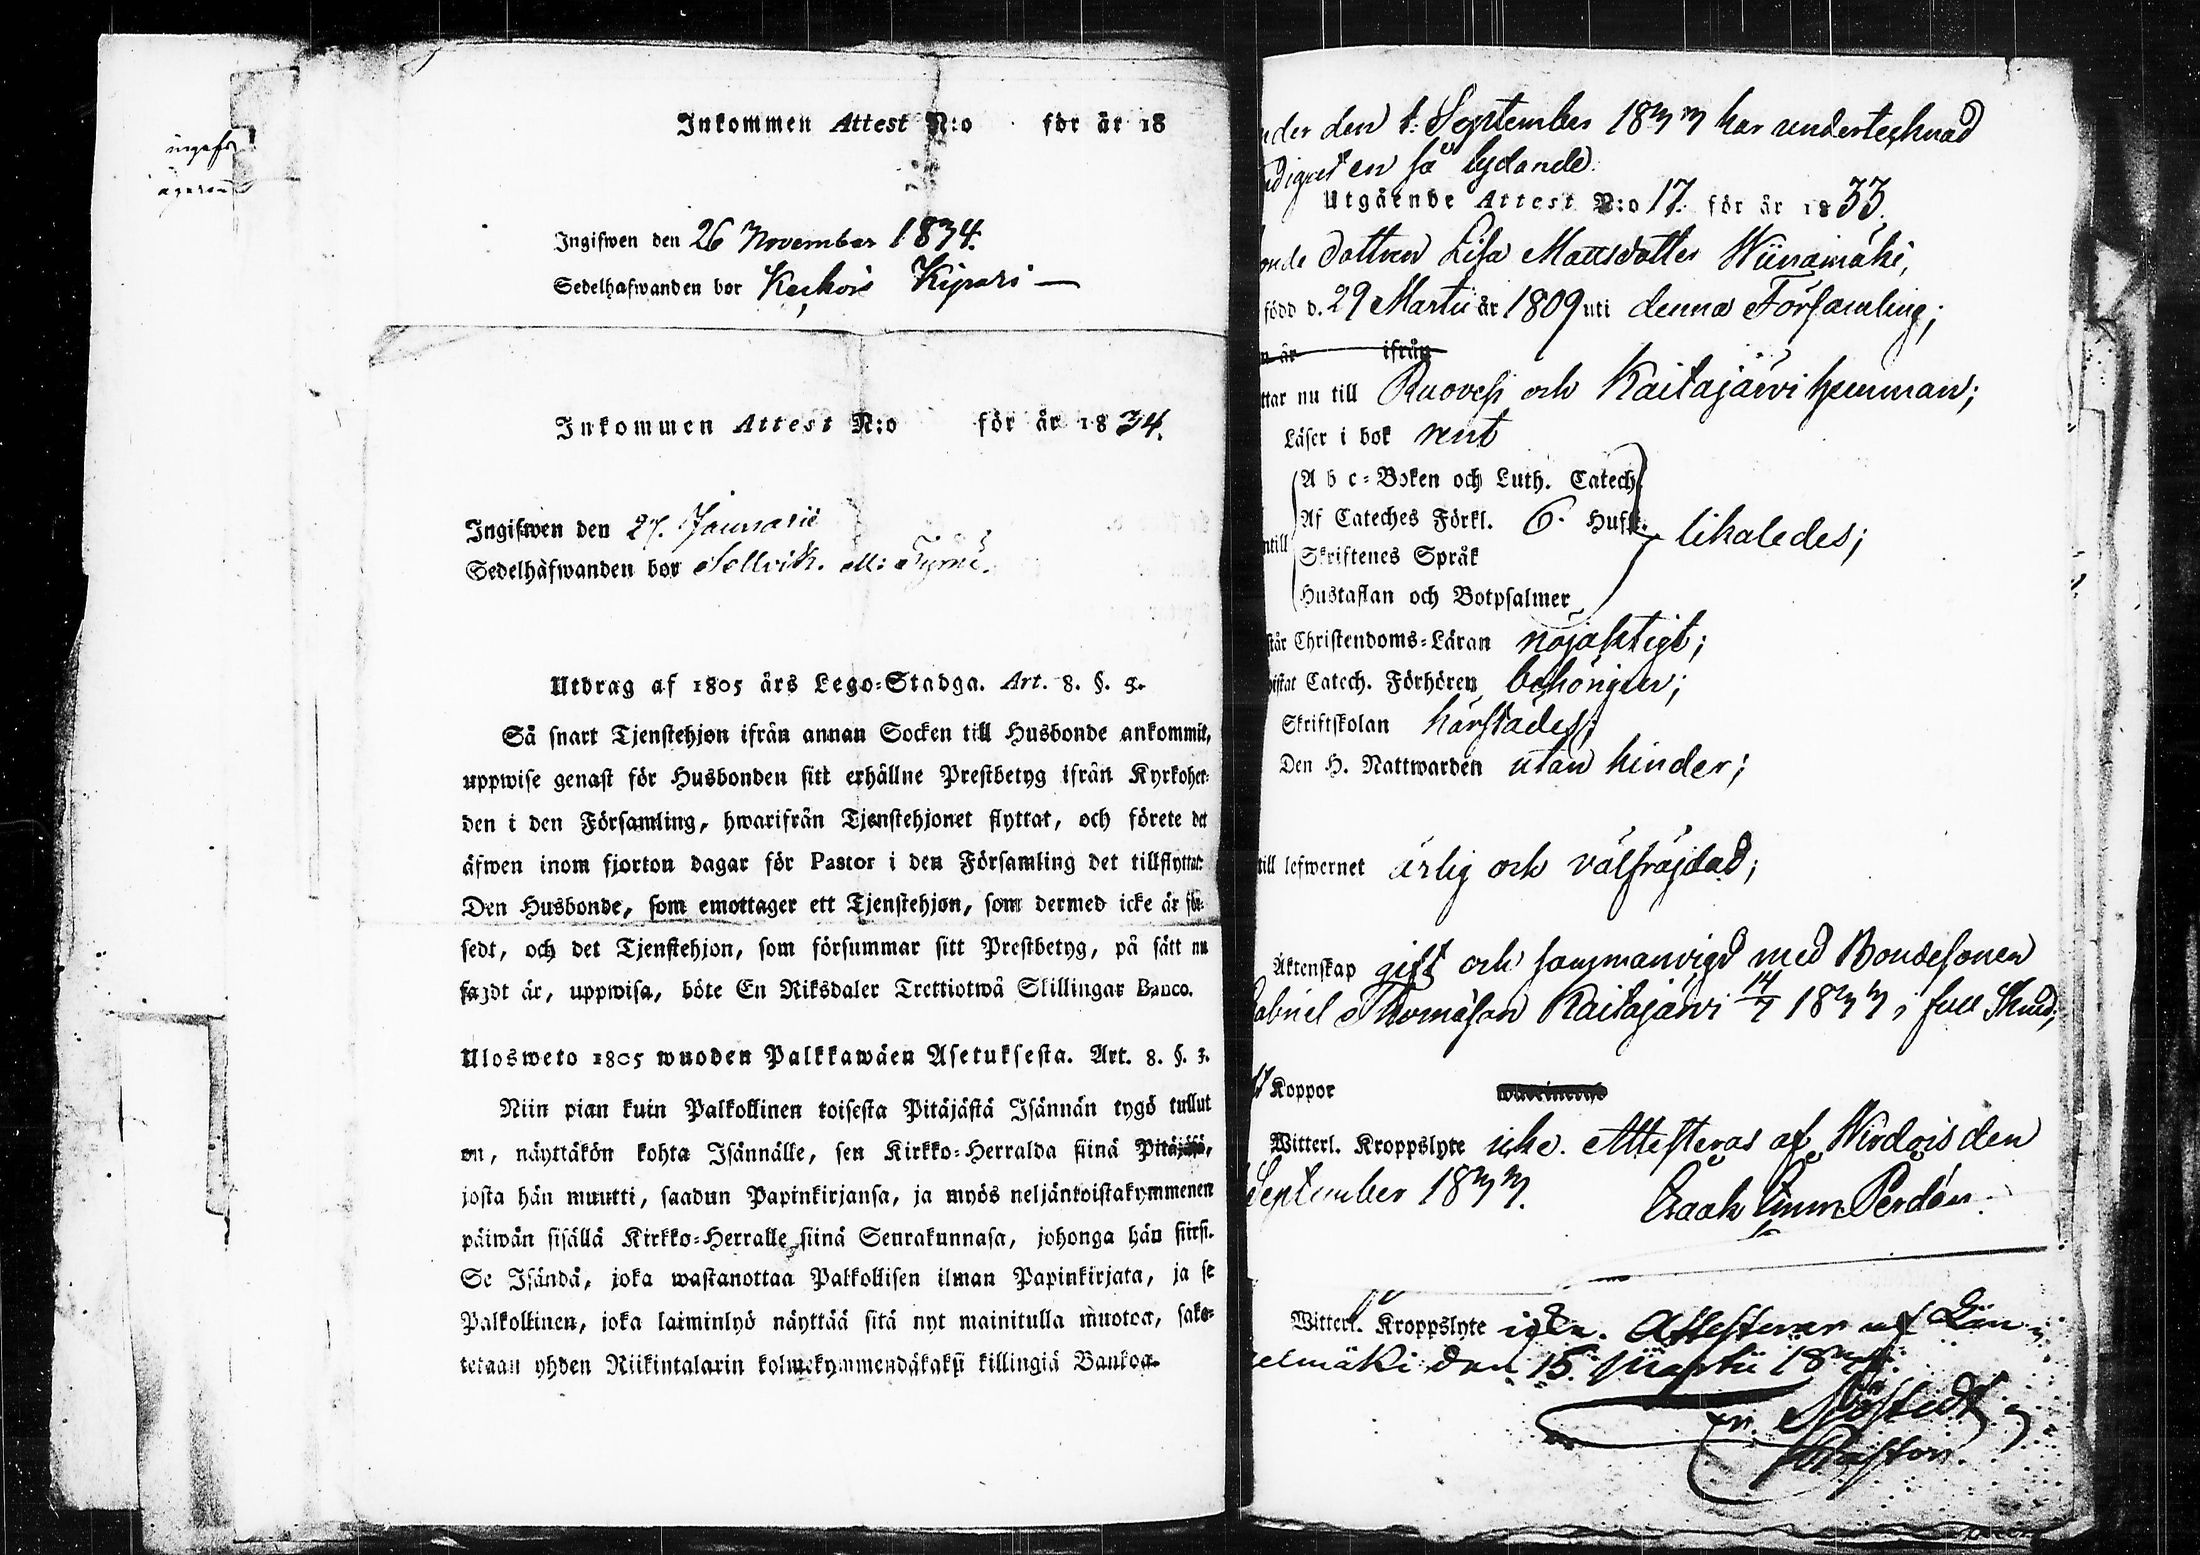 Inkommen Attest N:o för år 18
Ingifwen den 26 November 1834.
Sedelhafwanden bor Keskois Kipari —
Inkommen Attest N:o för år 1834.
Ingifwen den 27. Januarii
Sedelhafwanden bor Sellvik.
Utdrag af 1805 års Lego=Stadga. Art. 8. §. 3.
Så snart Tjenstehjon ifrån annan Socken till Husbonde ankommit,
uppwise genast för Husbonden sitt erhållne Prestbetyg ifrån Kyrkoher-
den i den Församling, hwarifrån Tjenstehjonet flyttat, och förete det
äfwen inom fjorton dagar för Pastor i den Församling det tillflyttat.
Den Husbonde, som emottager ett Tjenstehjon, som dermed icke är för-
sedt, och det Tjenstehjon, som försummar sitt Prestbetyg, på sätt nu
sagdt är, uppwisa, böte En Riksdaler Trettiotwå Skillingar Banco.
Ulosweto 1805 wuoden Palkkawäen Asetuksesta. Art. 8. §. 3.
Niin pian kuin Palkollinen toisesta Pitäjästä Isännän tygö tullut
on, näyttäkön kohta Isännälle, sen Kirkko=Herralda siinä Pitäjäsä,
josta hän muutti, saadun Papinkirjansa, ja myös neljäntoistakymmenen
päiwän sisällä Kirkko=Herralle siinä Seurakunnasa, johonga hän siirsi.
Se Isändä, joka wastanottaa Palkollisen ilman Papinkirjata, ja se
Palkollinen, joka laiminlyö näyttää sitä nyt mainitulla muotoa, sako-
tetaan yhden Riikintalarin kolmekymmendäkaksi killingiä Bankoa.
nder den 1. September 1833 har undertecknad
en så lydande
Utgående Attest N:o 17. för år 1833.
onde dottren Lisa Mattsdotter Wiinamäki,
född d. 29 Martii år 1809 uti denna Församling;
n är ifrån
ttar nu till Ruovesi och Kaitajärvi hemman;
Läser i bok rent
A b c=Boken och Luth. Catech.
Af Cateches Förkl. 6. Hufst.
ntill likaledes;
Skriftenes Språk
Hustaflan och Botpsalmer
står Christendoms=Läran nöjaktigt;
istat Catech. Förhören behörigen;
Skriftskolan härstädes;
Den H. Nattwarden utan hinder;
till lefwernet ärlig och välfräjdad;
Äktenskap gift och sammanvigd med Bondesonen
abriel Thomasson Kaitajärvi 14/7 1833, i full Skrud;
Koppor
Witterl. Kroppslyte icke. Attesteras af Wirdois den
September 1833.
Isaak Emm. Perdén.
Witterl. Kroppslyte icke. Attesterar af Län-
gelmäki den 15. Martii 18
Sjöstedt
Pastor.